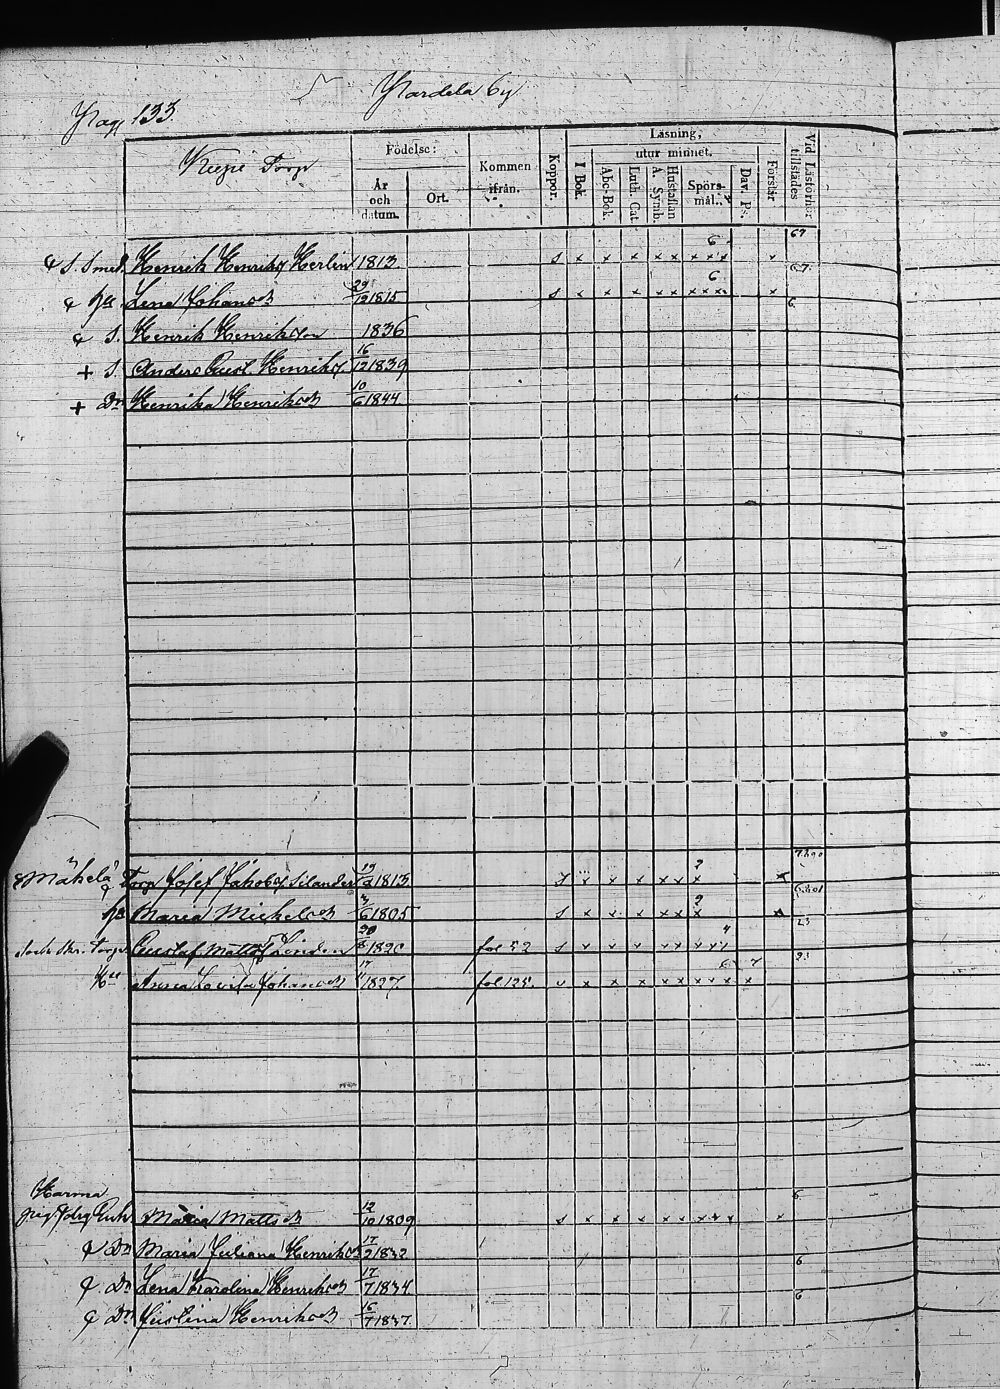 Pag 133. Nardela by
Kupi Torp
Födelse:
År och datum.
Ort.
Kommen ifrån.
Koppor.
Läsning,
utur minnet.
I Bok.
Abc-Bok.
Luth. Cat.
Hustaflan A. Symb.
Spörs-mål.
Dav. Ps.
Förstår
Vid Läsförhör tillstädes
Henrik Henriks Herlin 1813. s x x x x x x x x 6 x 67
Hu Lena Johansdr 29/12 1815 s x x x x x x x x 6 x 67
S. Henrik Henrikson 1836 6
+ S. Anders Gust. Henriks 16/12 1839
+ Dr Henrika Henriksdr 10/6 1844
Mäkelä Torp Josef Jakobs Silander 19/3 1813 s x x x x x x 2 x
Hu Maria Michelsdr 3/6 1805 s x x x x x x 2 x
Torp Gustaf Matts Linden 1820 fol 52 s x x x x x x x 4 23
Hu Anna Lovisa Johansdr 17/11 1827 fol 125. v x x x x x x x x 6 7 23
Harma
Enk. Maria Mattsdr 12/10 1809 s x x x x x x x x x 6
Dr Maria Juliana Henriksdr 17/2 1832
Dr Lena Karolina Henriksdr 17/7 1834 6
Dr Justina Henriksdr 16/7 1837 6